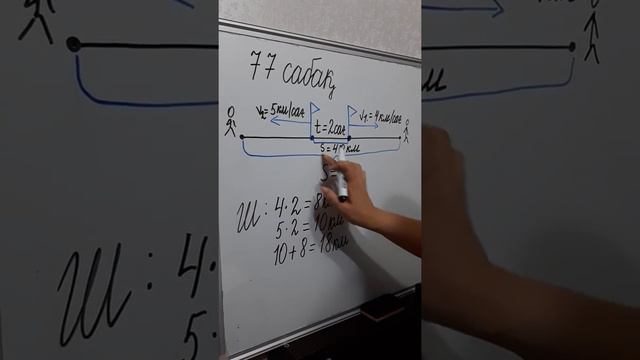 77 сабақ
V₂=5км/сағ
t=2сағ
V₁=4км/сағ
S=4
км
S=
Ш: 4·2=8
5·2=10км
10+8=18км